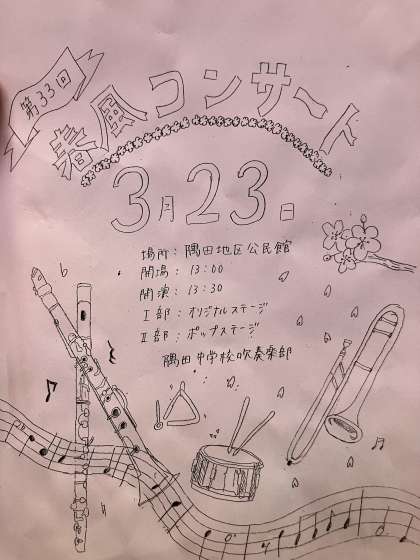 第33回
春風コンサート
3月23日
場所：隅田地区公民館
開場：13:00
開演：13:30
Ⅰ部：オリジナルステージ
Ⅱ部：ポップステージ
隅田中学校吹奏楽部